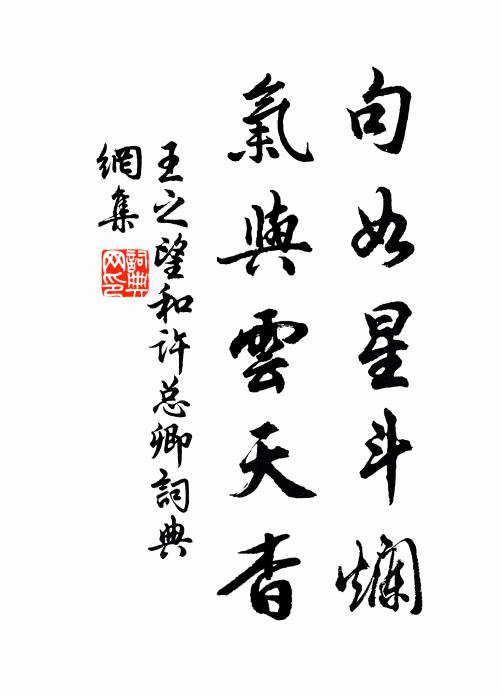 句如星斗爛
氣與雲天杳
王之望和许总卿詞典
網集
詞典网印